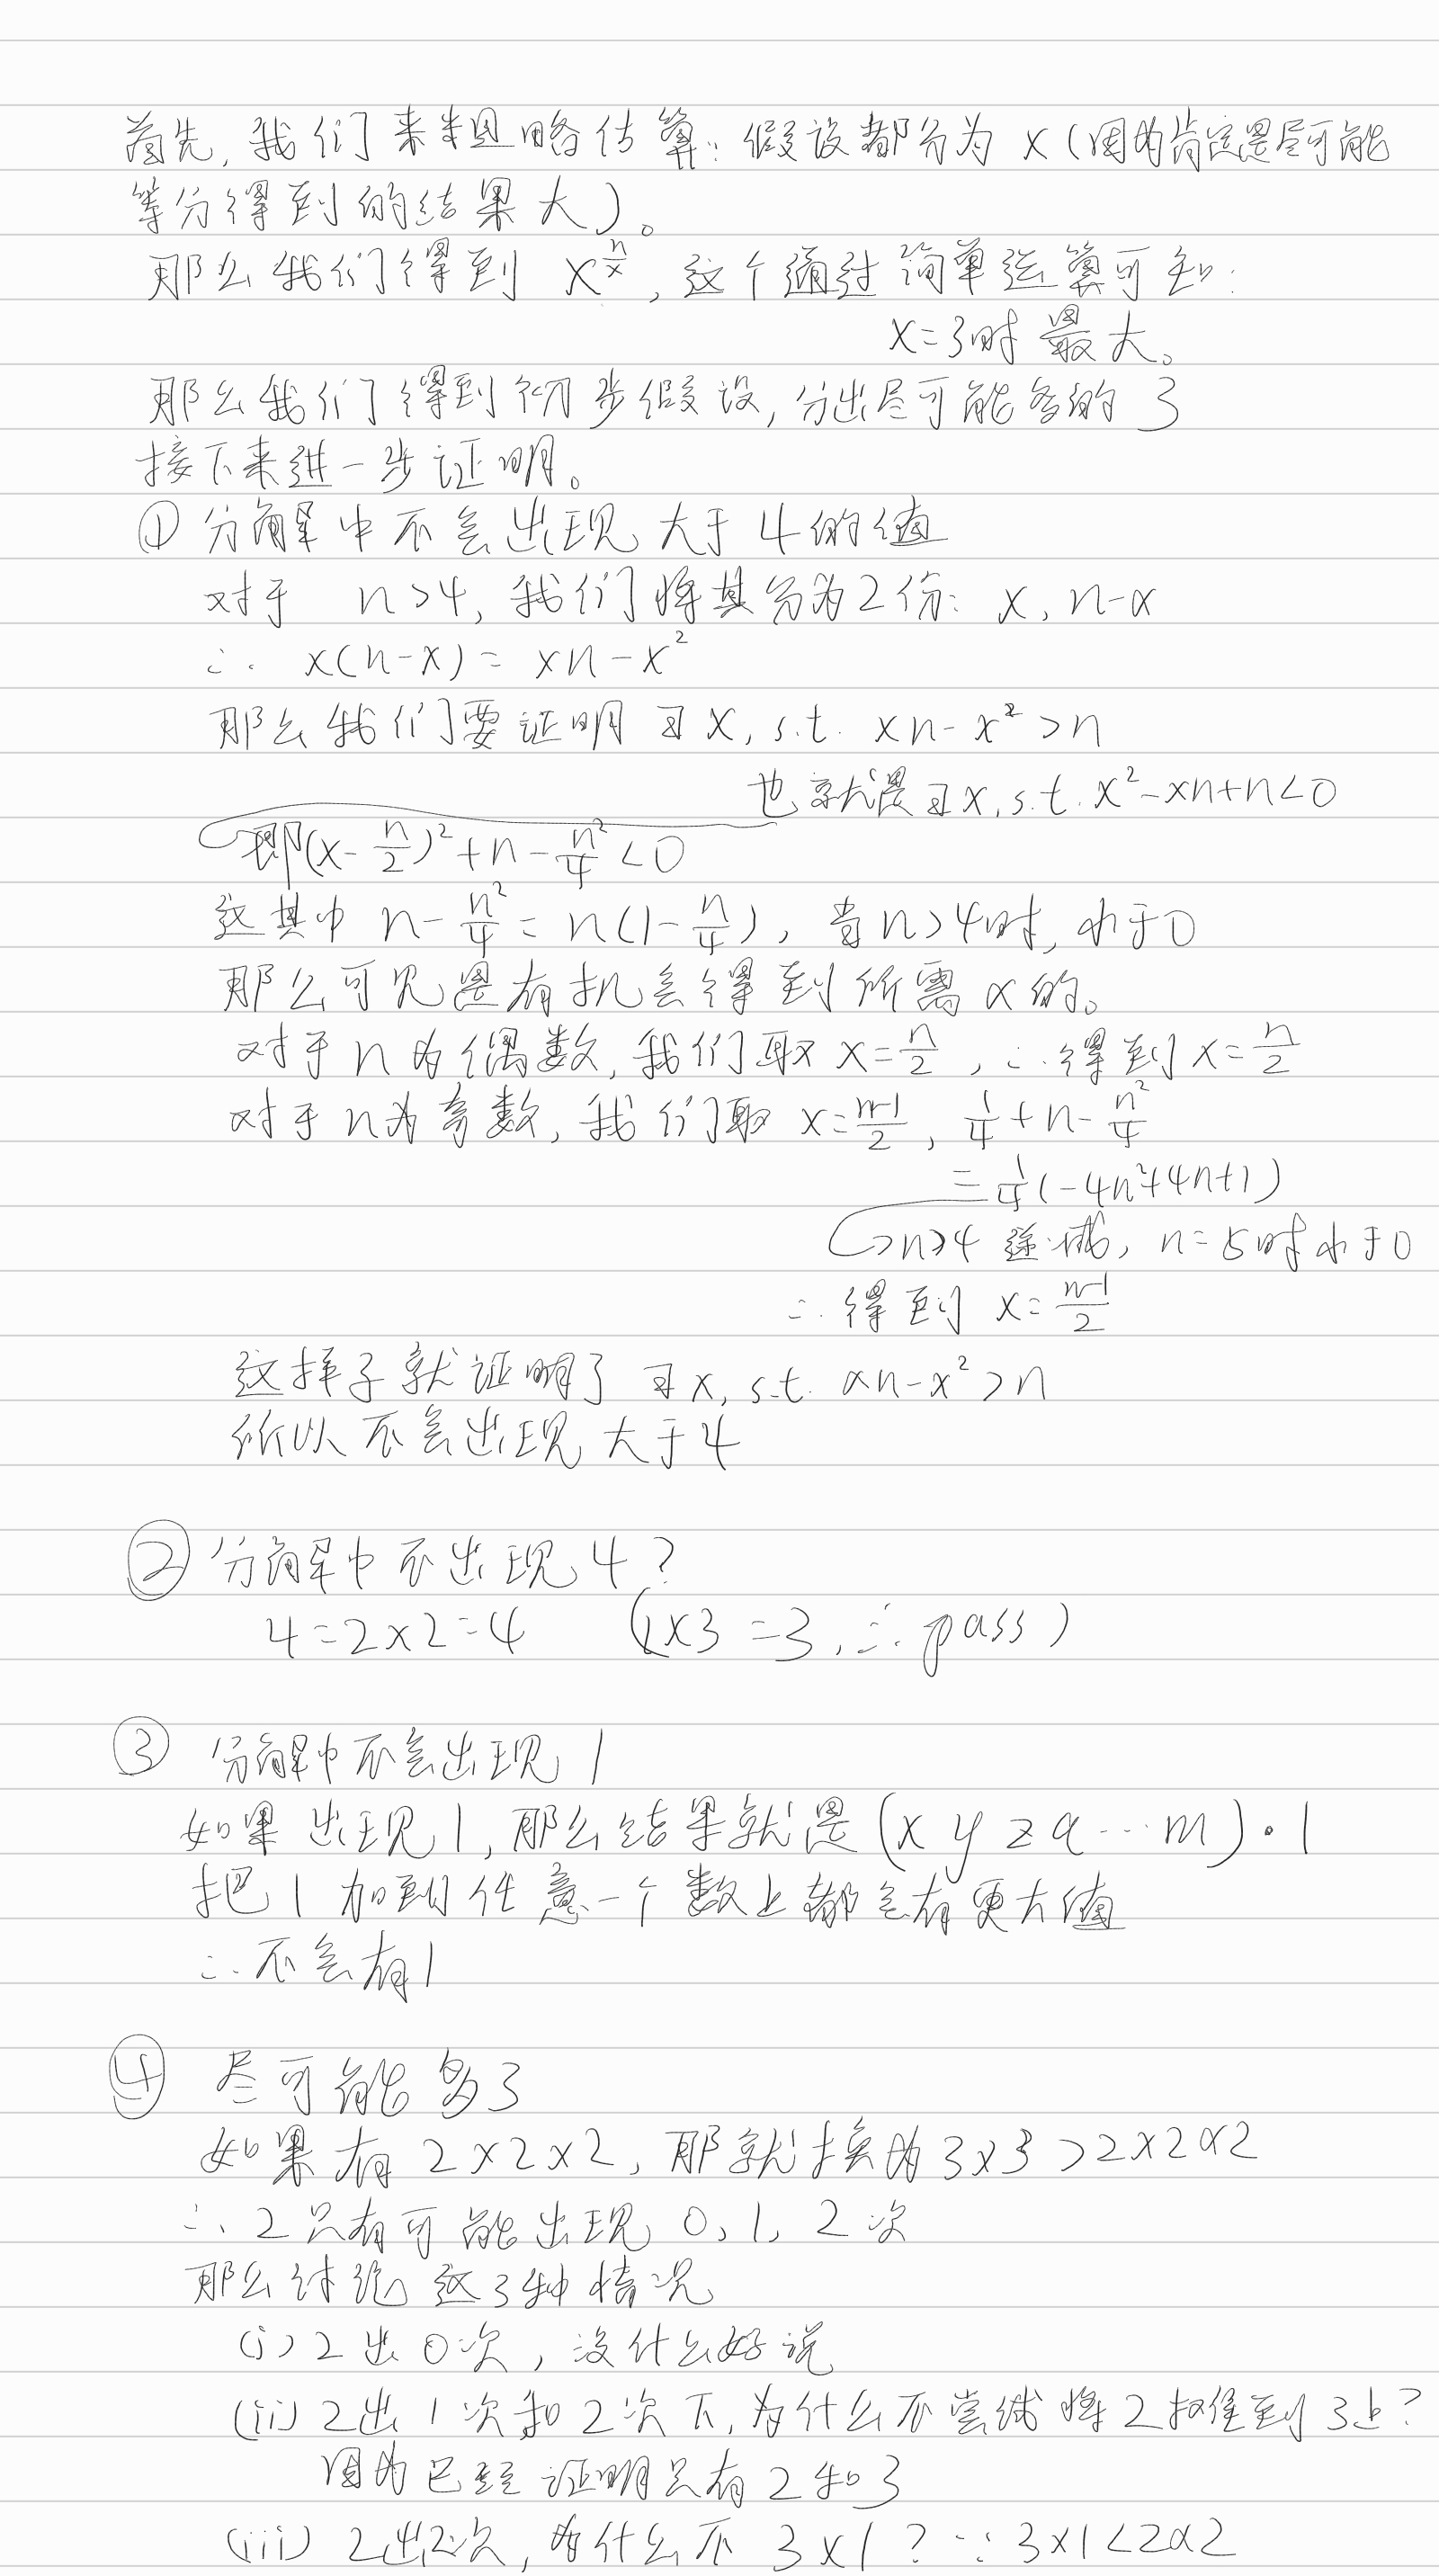 首先, 我们来粗略估算: 假设都分为 x (因为肯定是尽可能
等分得到的结果大)。
那么我们得到 x^(n/x), 这个通过简单运算可知:
x=3时 最大。
那么我们得到初步假设, 分出尽可能多的 3
接下来进一步证明。
① 分解中不会出现大于4的值
对于 n>4, 我们将其分为2份: x, n-x
∴ x(n-x) = xn-x²
那么我们要证明 ∃x, s.t. xn-x²>n
也就是∃x, s.t. x²-xn+n<0
即(x-n/2)²+n-n²/4<0
这其中 n-n²/4=n(1-n/4), 当n>4时, 小于0
那么可见是有机会得到所需x的。
对于n为偶数, 我们取 x=n/2, ∴得到x=n/2
对于n为奇数, 我们取 x=(n-1)/2, 1/4+n-n²/4
=1/4(-4n²+4n+1)
→n≥4 递减, n=5时小于0
∴得到 x=(n-1)/2
这样子就证明了 ∃x, s.t. xn-x²>n
所以不会出现大于4
② 分解中不出现4?
4=2×2=4 (1×3=3, ∴pass)
③ 分解中不会出现1
如果出现1, 那么结果就是(x y z a…m)·1
把1加到任意一个数上都会有更大值
∴不会有1
④ 尽可能多3
如果有2×2×2, 那就换为3×3>2×2×2
∴2只有可能出现0, 1, 2次
那么讨论这3种情况
(i) 2出0次, 没什么好说
(ii) 2出1次和2次下, 为什么不尝试将2权值到3上?
因为已经证明只有2和3
(iii) 2出2次, 为什么不 3×1? ∵3×1<2×2